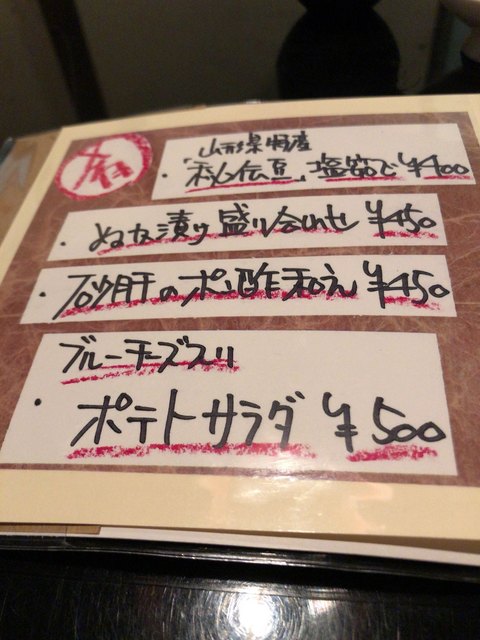 山形県特産
・「秘伝豆」塩茹で ¥400
・ぬか漬け盛り合わせ ¥450
・砂肝のポン酢和え ¥450
ブルーチーズ入り
・ポテトサラダ ¥500